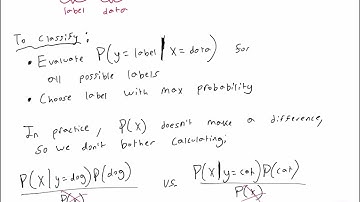 label data
To Classify:
• Evaluate P(y=label | X=data) for
all possible labels
• Choose label with max probability
In practice, P(X) doesn't make a difference,
so we don't bother calculating:
P(X|y=dog)P(dog) vs. P(X|y=cat)P(cat)
P(X) P(X)